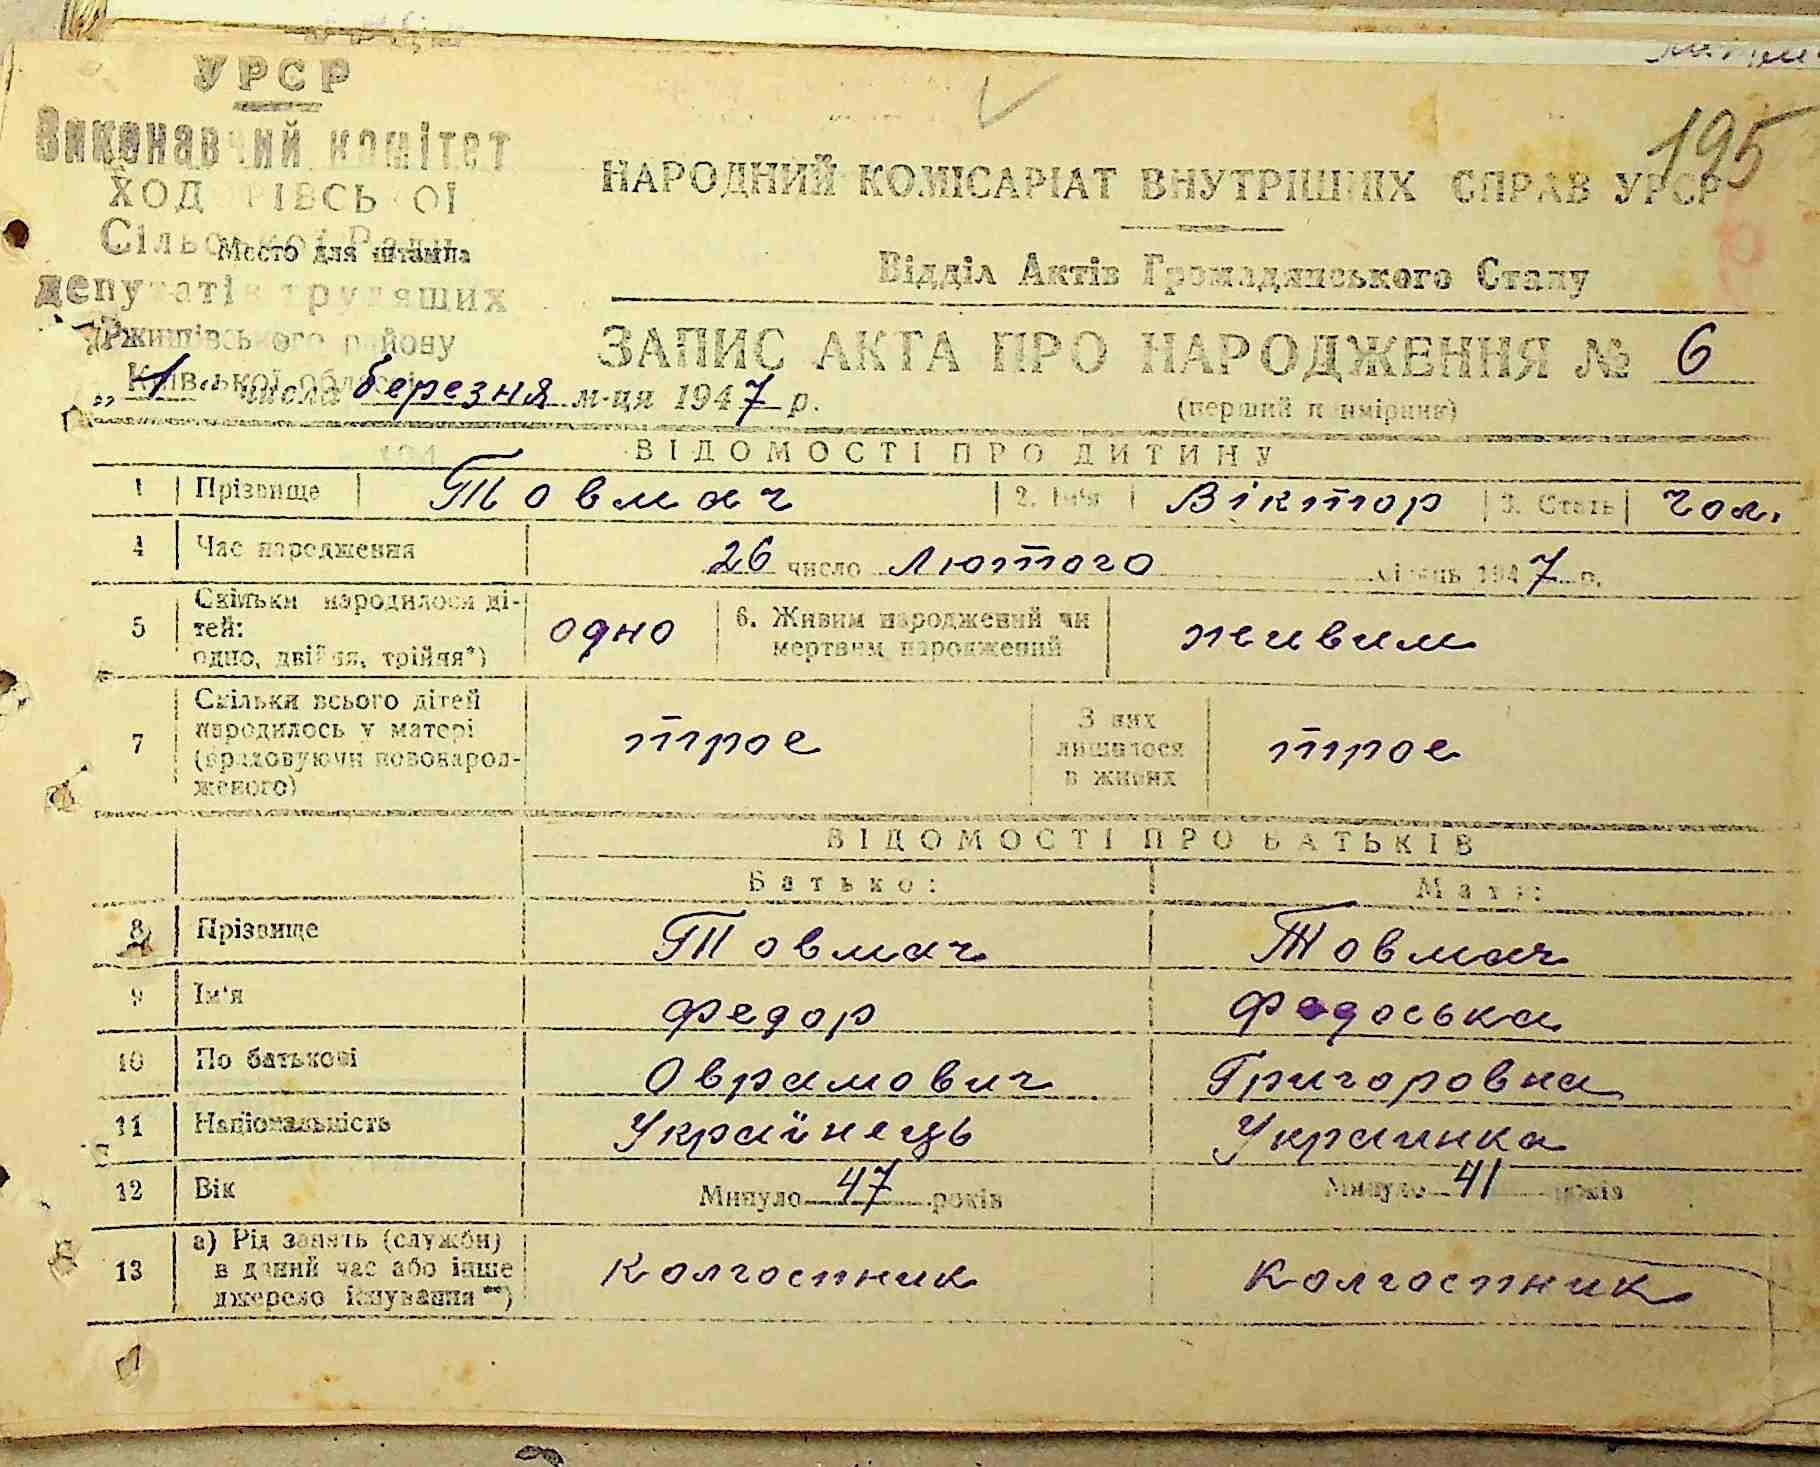 УРСР
Виконавчий комітет
ХОДОРІВСЬКОЇ
Сільської Ради
Место для штампа
депутатів трудящих
Ржищівського району
Київської області
195
НАРОДНИЙ КОМІСАРІАТ ВНУТРІШНІХ СПРАВ УРСР
Відділ Актів Громадянського Стану
ЗАПИС АКТА ПРО НАРОДЖЕННЯ № 6
„ 1 " числа березня м-ця 1947 р.
(перший примірник)
ВІДОМОСТІ ПРО ДИТИНУ
1 Прізвище Товмач 2. Ім'я Віктор 3. Стать чол.
4 Час народження 26 число Лютого місяць 1947 р.
5 Скільки народилося дітей: одно, двійня, трійня*) одно 6. Живим народжений чи мертвим народжений живим
7 Скільки всього дітей народилось у матері (враховуючи новонародженого) трое З них лишилося в живих трое
ВІДОМОСТІ ПРО БАТЬКІВ
Батько: Мати:
8 Прізвище Товмач Товмач
9 Ім'я Федор Федоська
10 По батькові Оврамович Григоровна
11 Національність Українець Украинка
12 Вік Минуло 47 років Минуло 41 років
13 а) Рід занять (служби) в даний час або інше джерело існування**) Колгоспник Колгоспник